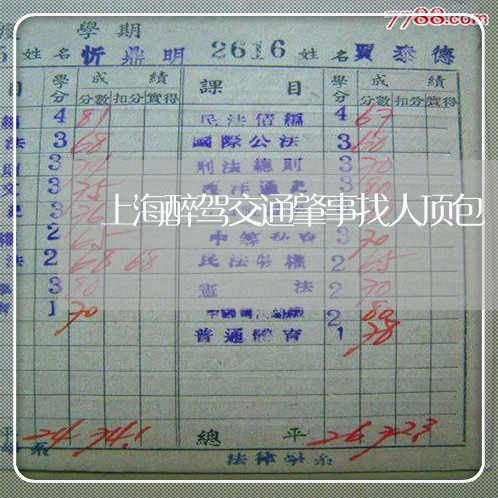 7788.com
學期
姓名 忻鼎明 2616 姓名 賈泰德
目 學分 成績 課目 學分 成績
分數 扣分 實得 分數 扣分 實得
4 81 民法債編 4 67
法 3 68 國際公法 3 60
3 刑法總則 3 70
上海醉驾交通肇事找人顶包
3 75 3 80
2 65 3 70
法 2 68 68 民法物權 2 65
3 80 憲法 2 70
1 70 2 80
普通體育 1 78
平 24 74.1 總平 26 72.3
系 法律學系